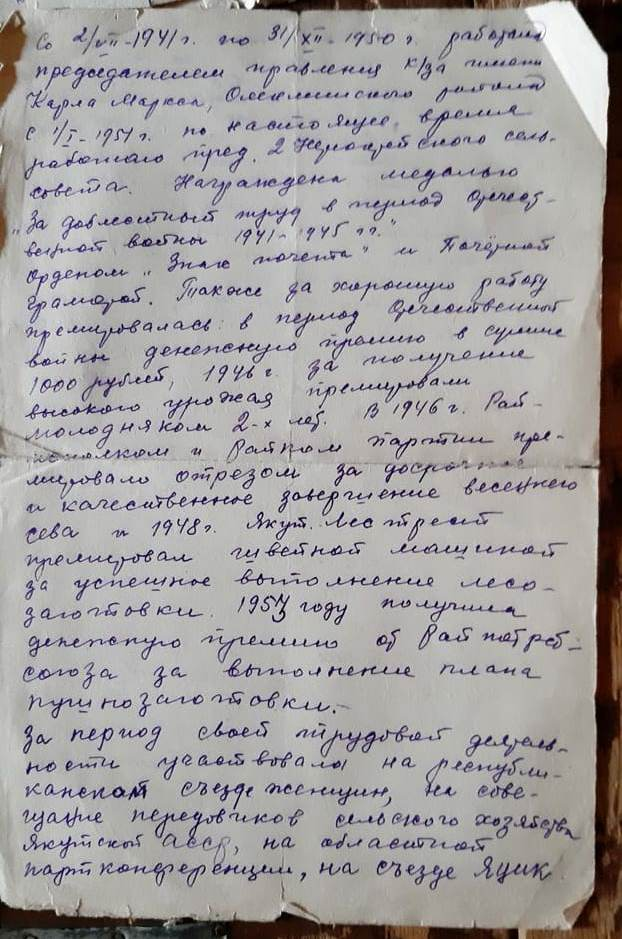 Со 2/VII-1941 г. по 31/XII-1950 г. работала
председателем правления к/за имени
Карла Маркса, Олекминского района
с 1/I-1951 г. по настоящее время
работаю пред. 2 Нерюктейского сель-
совета. Награждена медалью
"За доблестный труд в период Отечест-
венной войны 1941-1945 гг."
Орденом "Знак почета" и Почётной
грамотой. Также за хорошую работу
премировалась: в период Отечественной
войны денежную премию в сумме
1000 рублей, 1946 г. за получение
высокого урожая премировали
молодняком 2-х лет. В 1946 г. Рай-
исполком и Райком партии пре-
мировало отрезом за досрочное
и качественное завершение весеннего
сева и 1948 г. Якут. Лестрест
премировал швейной машиной
за успешное выполнение лесо-
заготовки. году получила
денежную премию от Райпотреб-
союза за выполнение плана
пушнозаготовки.-
За период своей трудовой деятель-
ности участвовала на республи-
канском съезде женщин, на сове-
щание передовиков сельского хозяйства
Якутской АССР, на областной
партконференции, на съезде ЯЦИК